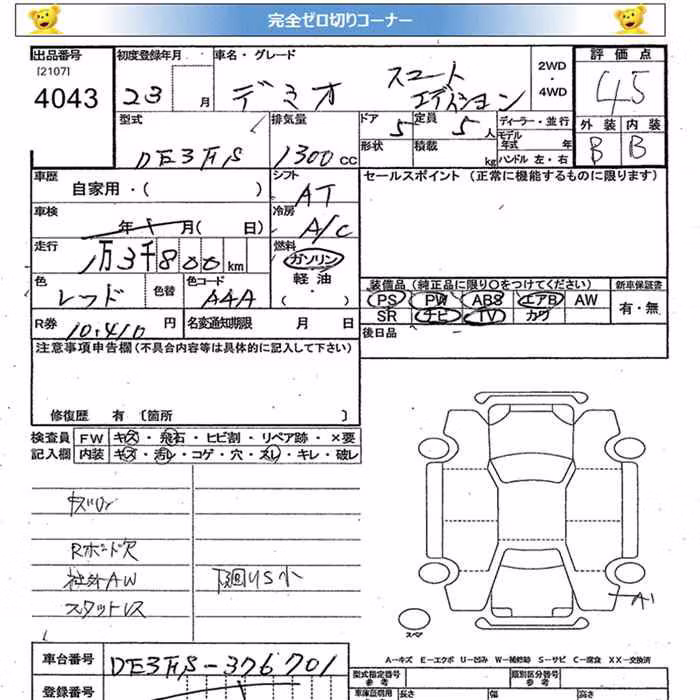 完全ゼロ切りコーナー
出品番号 初度登録年月 車名・グレード 2WD・4WD 評価点
[2107]
4043 23 月 デミオ スマートエディション 45
型式 排気量 ドア 定員 ディーラー・並行 外装 内装
DE3FS 1300CC 5 5人 モデル年式 年 B B
形状 積載 kg ハンドル 左・右
車歴 自家用・( ) シフト AT セールスポイント (正常に機能するものに限ります)
車検 年 月( 日) 冷房 A/C
走行 1万3千800km 燃料 ガソリン 軽油 ( ・ )
色 レッド 色替 色コード A4A
装備品(純正品に限り○をつけてください) 新車保証書
PS PW ABS エアB AW 有・無
SR ナビ TV カワ
R券 10,410円 名変通知期限 月 日 後日品
注意事項申告欄(不具合内容等は具体的に記入して下さい)
修復歴 有 〔箇所 〕
検査員 FW キズ・飛石・ヒビ割・リペア跡・×要
記入欄 内装 キズ・汚レ・コゲ・穴・スレ・キレ・破レ
Rボード欠
社外AW 下廻りS小
スタットレス
A1
スペア
A-キズ E-エクボ U-凹み W-補修跡 S-サビ C-腐食 XX-交換済
車台番号 DE3FS-376701
型式指定番号 参考 類別区分番号 参考
登録番号 車庫証明用 長さ 幅 高さ